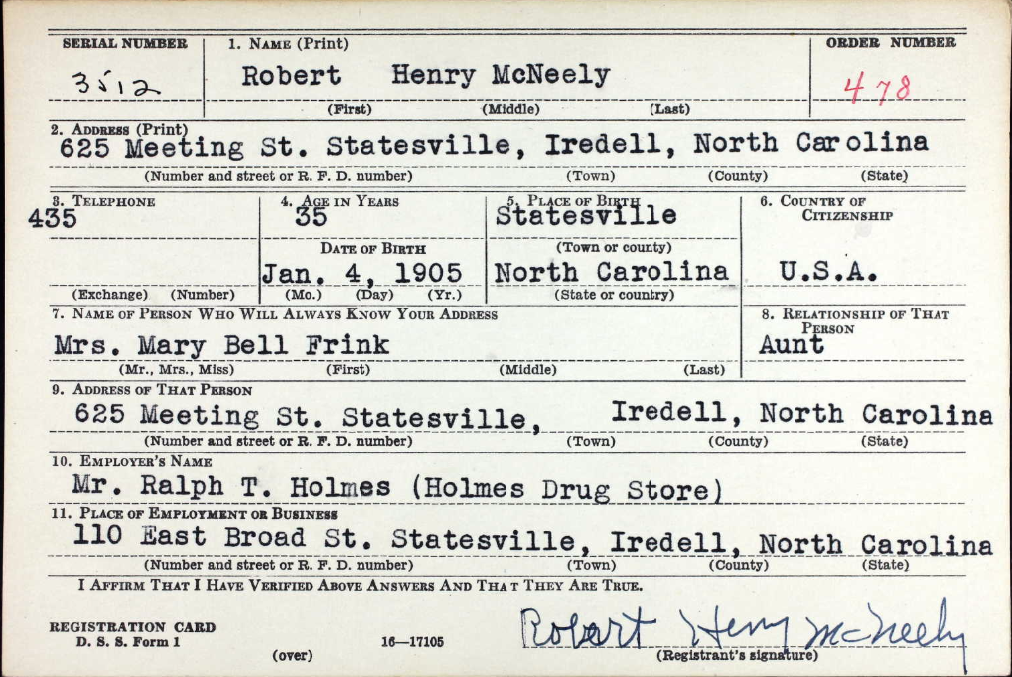 SERIAL NUMBER 1. NAME (Print) ORDER NUMBER
3512 Robert Henry McNeely 478
(First) (Middle) (Last)
2. ADDRESS (Print)
625 Meeting St. Statesville, Iredell, North Carolina
(Number and street or R. F. D. number) (Town) (County) (State)
3. TELEPHONE 4. AGE IN YEARS 5. PLACE OF BIRTH 6. COUNTRY OF CITIZENSHIP
435 35 Statesville
DATE OF BIRTH (Town or county)
Jan. 4, 1905 North Carolina U.S.A.
(Exchange) (Number) (Mo.) (Day) (Yr.) (State or country)
7. NAME OF PERSON WHO WILL ALWAYS KNOW YOUR ADDRESS 8. RELATIONSHIP OF THAT PERSON
Mrs. Mary Bell Frink Aunt
(Mr., Mrs., Miss) (First) (Middle) (Last)
9. ADDRESS OF THAT PERSON
625 Meeting St. Statesville, Iredell, North Carolina
(Number and street or R. F. D. number) (Town) (County) (State)
10. EMPLOYER'S NAME
Mr. Ralph T. Holmes (Holmes Drug Store)
11. PLACE OF EMPLOYMENT OR BUSINESS
110 East Broad St. Statesville, Iredell, North Carolina
(Number and street or R. F. D. number) (Town) (County) (State)
I AFFIRM THAT I HAVE VERIFIED ABOVE ANSWERS AND THAT THEY ARE TRUE.
REGISTRATION CARD Robert Henry McNeely
D. S. S. Form 1 16—17105
(over) (Registrant's signature)